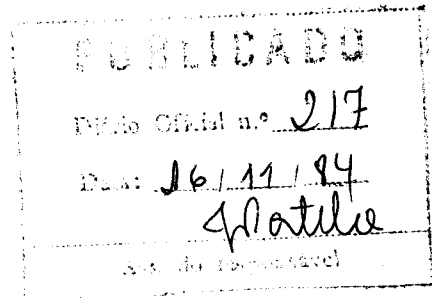 PUBLICADO
Diário Oficial n.º 217
Data: 16/11/94
Ass. do responsável